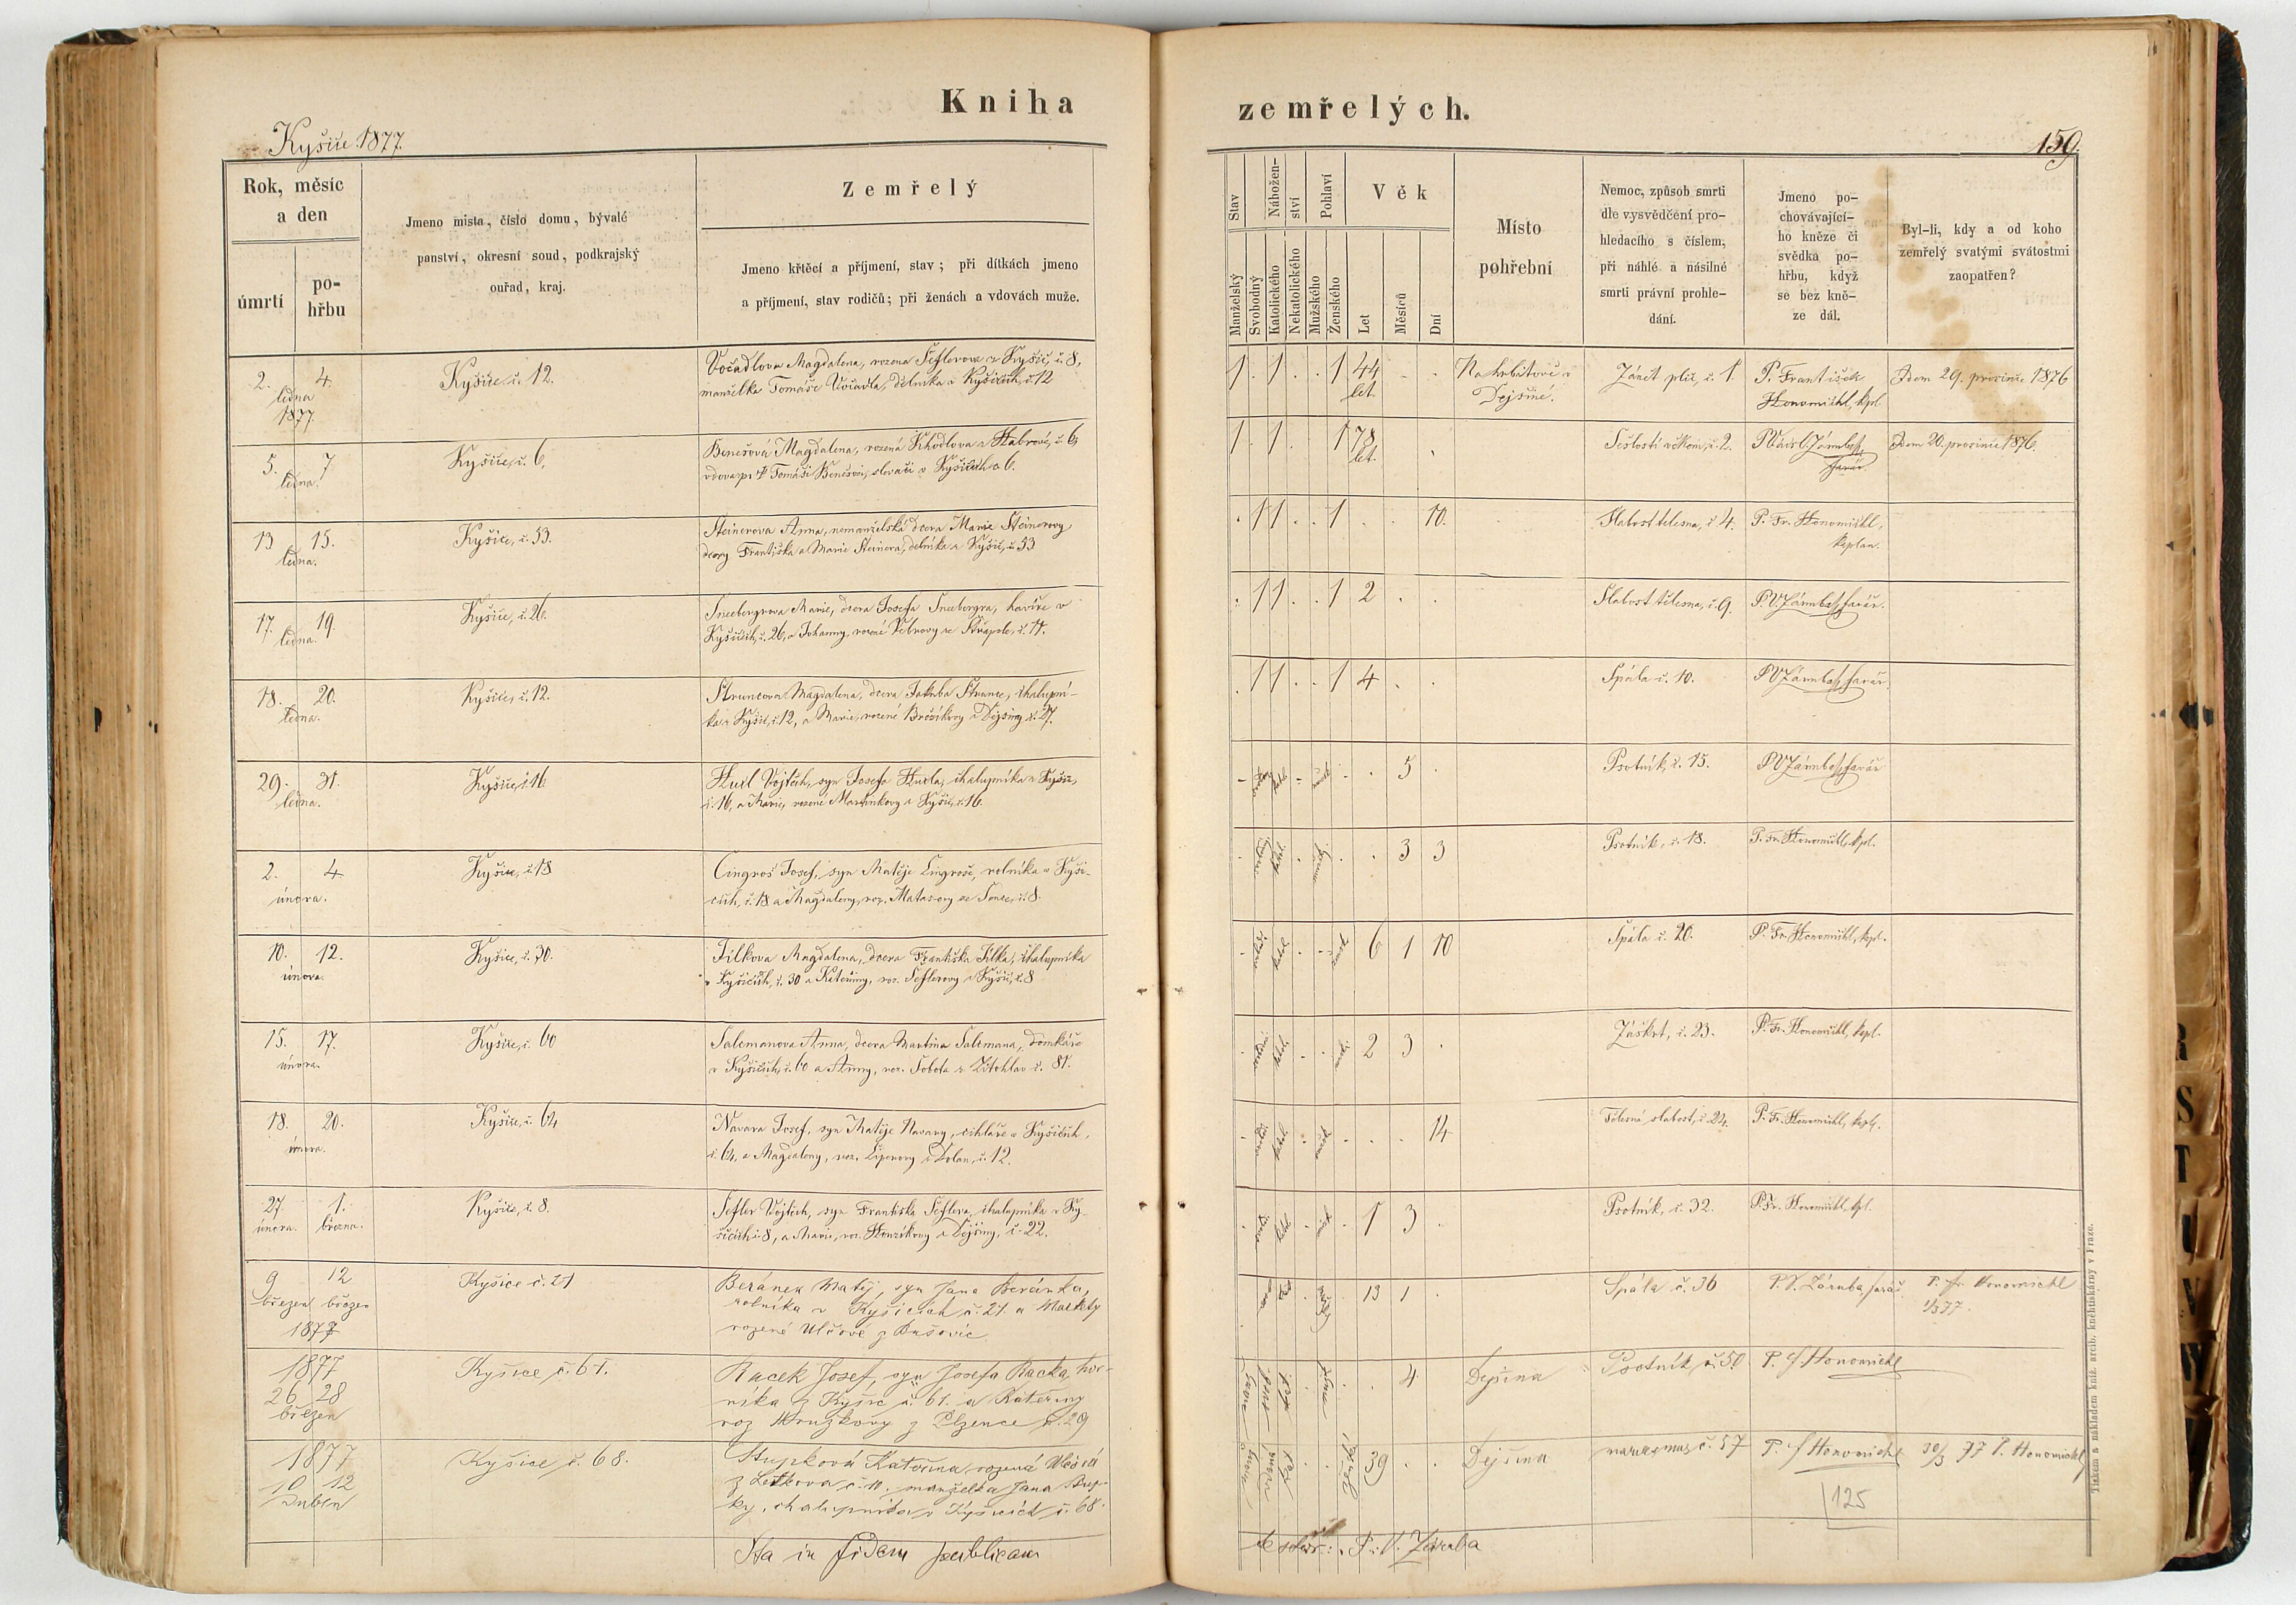 Kniha
zemřelých.
Kyšice 1877.
159.
Rok, měsíc
a den
úmrtí
po-
hřbu
Jmeno místa, číslo domu, bývalé
panství, okresní soud, podkrajský
ouřad, kraj.
Zemřelý
Jmeno křtěcí a příjmení, stav; při dítkách jmeno
a příjmení, stav rodičů; při ženách a vdovách muže.
Stav
Nábožen-
ství
Pohlaví
Věk
Manželský
Svobodný
Katolického
Nekatolického
Mužského
Ženského
Let
Měsíců
Dní
Místo
pohřební
Nemoc, způsob smrti
dle vysvědčení pro-
hledacího s číslem,
při náhlé a násilné
smrti právní prohle-
dání.
Jmeno po-
chovávající-
ho kněze či
svědka po-
hřbu, když
se bez kně-
ze dál.
Byl-li, kdy a od koho
zemřelý svatými svátostmi
zaopatřen?
2. 4. ledna 1877.
Kyšice č. 12.
Vočadlova Magdalena, rozena Šeflerova z Kyšic, č. 8,
manželka Tomáše Vočadla, dělníka v Kyšicích, č. 12
1. 1. . 1 44 let. . .
Na hřbitově v
Dejšině.
Zánět plic, č. 1.
P. František
Honomichl, kpl.
Idem 29. prosince 1876
5. 7 ledna.
Kyšice, č. 6.
Benešová Magdalena, rozená
vdova po † Tomáši Benešovi, v Kyšicích č. 6.
1. 1. 1 78 let.
Sešlostí věkem, č. 2.
farář
Idem 20. prosince 1876.
13 15. ledna.
Kyšice, č. 53.
Steinerova Anna, nemanželská dcera Marie Steinerovy
dcery Františka a Marie Steinera, dělníka z Kyšic, č. 53
. 1 1 . . 1 . . 10.
Slabost tělesna, č. 4.
P. Fr. Honomichl,
kaplan.
17. 19. ledna.
Kyšice, č. 26.
Sneebergrova Marie, dcera Josefa Sneebergra, havíře v
Kyšicích, č. 26, a Johanny, rozené
. 1 1 . . 1 2 . .
Slabost tělesna, č. 9.
P. V. Záruba, farář.
18. 20. ledna.
Kyšice, č. 12.
Struncova Magdalena, dcera Jakuba Strunce, chalupní-
ka z Kyšic, č. 12, a Marie, rozené z Dejšiny č. 27.
. 1 1 . . 1 4 . .
Spála č. 10.
P. V. Záruba, farář.
29. 31. ledna.
Kyšice, č. 16
Vojtěch, syn Josefa chalupníka z Kyšic,
č. 16, a Marie, rozené Martinkovy z Kyšic, č. 16.
5
Psotník, č. 15.
P. V. Záruba, farář
2. 4. února.
Kyšice, č. 18
Cingroš Josef, syn Matěje Cingroše, rolníka v Kyši-
cích, č. 18 a Magdaleny, roz. č. 8.
3 3
Psotník, č. 18.
P. Fr. Honomichl, kpl.
10. 12. února.
Kyšice, č. 30.
Filkova Magdalena, dcera Františka Filka, chalupníka
v Kyšicích, č. 30 a Kateřiny, roz. Šeflerovy z Kyšic, č. 8
6 1 10
Spála č. 20.
P. Fr. Honomichl, kpl.
15. 17. února.
Kyšice, č. 60
Salcmanova Anna, dcera Martina Salcmana, domkáře
v Kyšicích, č. 60 a Anny, roz. č. 81.
2 3 .
Záškrt, č. 23.
P. Fr. Honomichl, kpl.
18. 20. února.
Kyšice, č. 64
Navara Josef, syn Matěje Navary, cihláře v Kyšicích,
č. 64, a Magdaleny, roz. z Dolan, č. 12.
14
Tělesná slabost, č. 24.
P. Fr. Honomichl, kpl.
27. února. 1. března.
Kyšice, č. 8.
Šefler Vojtěch, syn Františka Šeflera, chalupníka v Ky-
šicích č. 8, a Marie, roz. Honzíkovy z Dejšiny, č. 22.
1 3 .
Psotník, č. 32.
P. Fr. Honomichl, kpl.
9 12
březen březen
1877
Kyšice č. 21
Beránek Matěj, syn Jana Beránka,
rolníka v Kyšicích č. 21. a Markéty
rozené Ulčové z Bušovic
13 1
Spála č. 36
P. V. Záruba, farář
P. Fr. Honomichl
1877
26 28
březen
Kyšice č. 61.
Racek Josef, syn Josefa Racka, hor-
níka z Kyšic č. 61. a Kateřiny
roz Hruzkovy z Plzence č. 29
4
Dejšina
Psotník, č. 50
P. F. Honomichl
1877
10 12
Duben
Kyšice č. 68.
Stupková Kateřina, rozená Ulčová
z Letkova č. 11. manželka Jana Stup-
ky, chalupníka v Kyšicích č. 68.
39
Dejšina
marasmus č. 57
P. F. Honomichl
30/3 77 P. Honomichl
125
Ita in fidem publicam
P. V. Záruba
Tiskem a nákladem kníž. arcib. knihtiskárny v Praze.
R
S
T
U
V
W